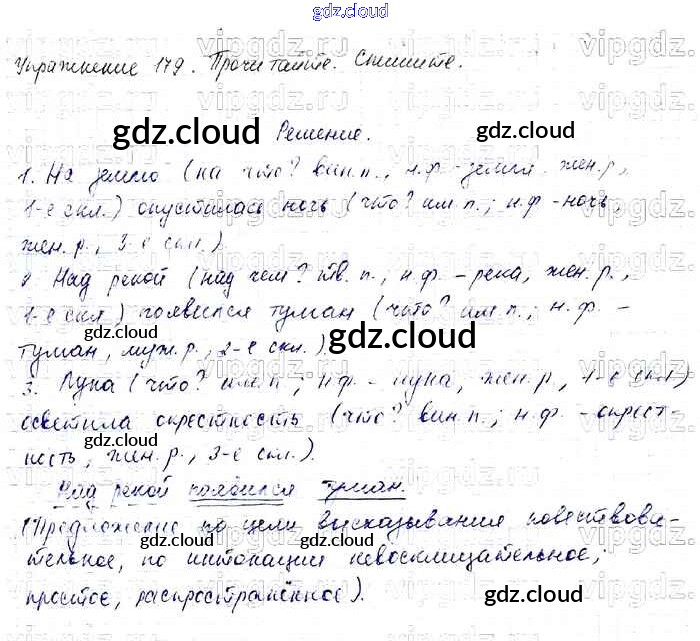 gdz.cloud
Упражнение 179. Прочитайте. Спишите.
gdz.cloud Решение. gdz.cloud
1. На землю (на что? вин.п., н.ф. - земля. жен.р,
1-е скл.) опустилась ночь (что? им.п.; н.ф - ночь,
жен.р., 3-е скл.).
2. Над рекой (над чем? тв.п., н.ф. - река, жен.р.,
1-е скл) появился туман (что? им.п.; н.ф. -
gdz.cloud gdz.cloud
туман, муж.р., 2-е скл.).
3. Луна (что? им.п.; н.ф - луна, жен.р, 1-е скл)
осветила окрестность (что? вин.п.; н.ф. - окрест-
gdz.cloud gdz.cloud
ность, жен.р., 3-е скл.).
Над рекой появился туман.
(Предложение по цели высказывания повествова-
gdz.cloud gdz.cloud
тельное, по интонации невосклицательное;
простое, распространённое).
gdz.cloud